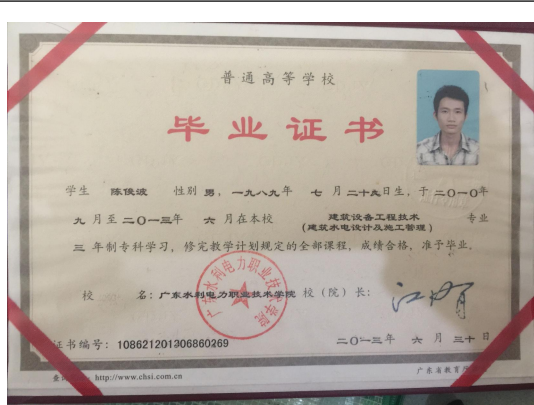 普通高等学校
毕业证书
学生 陈俊波 性别 男，一九八九年 七 月二十九日生，于二〇一〇年
九 月至二〇一三年 六 月在本校 建筑设备工程技术 专业
(建筑水电设计及施工管理)
三 年制专科学习，修完教学计划规定的全部课程，成绩合格，准予毕业。
广东水利电力职业技术学院
校 名：广东水利电力职业技术学院 校（院）长：
证书编号：108621201306860269
二〇一三年 六 月 三十 日
http://www.chsi.com.cn
广东省教育厅